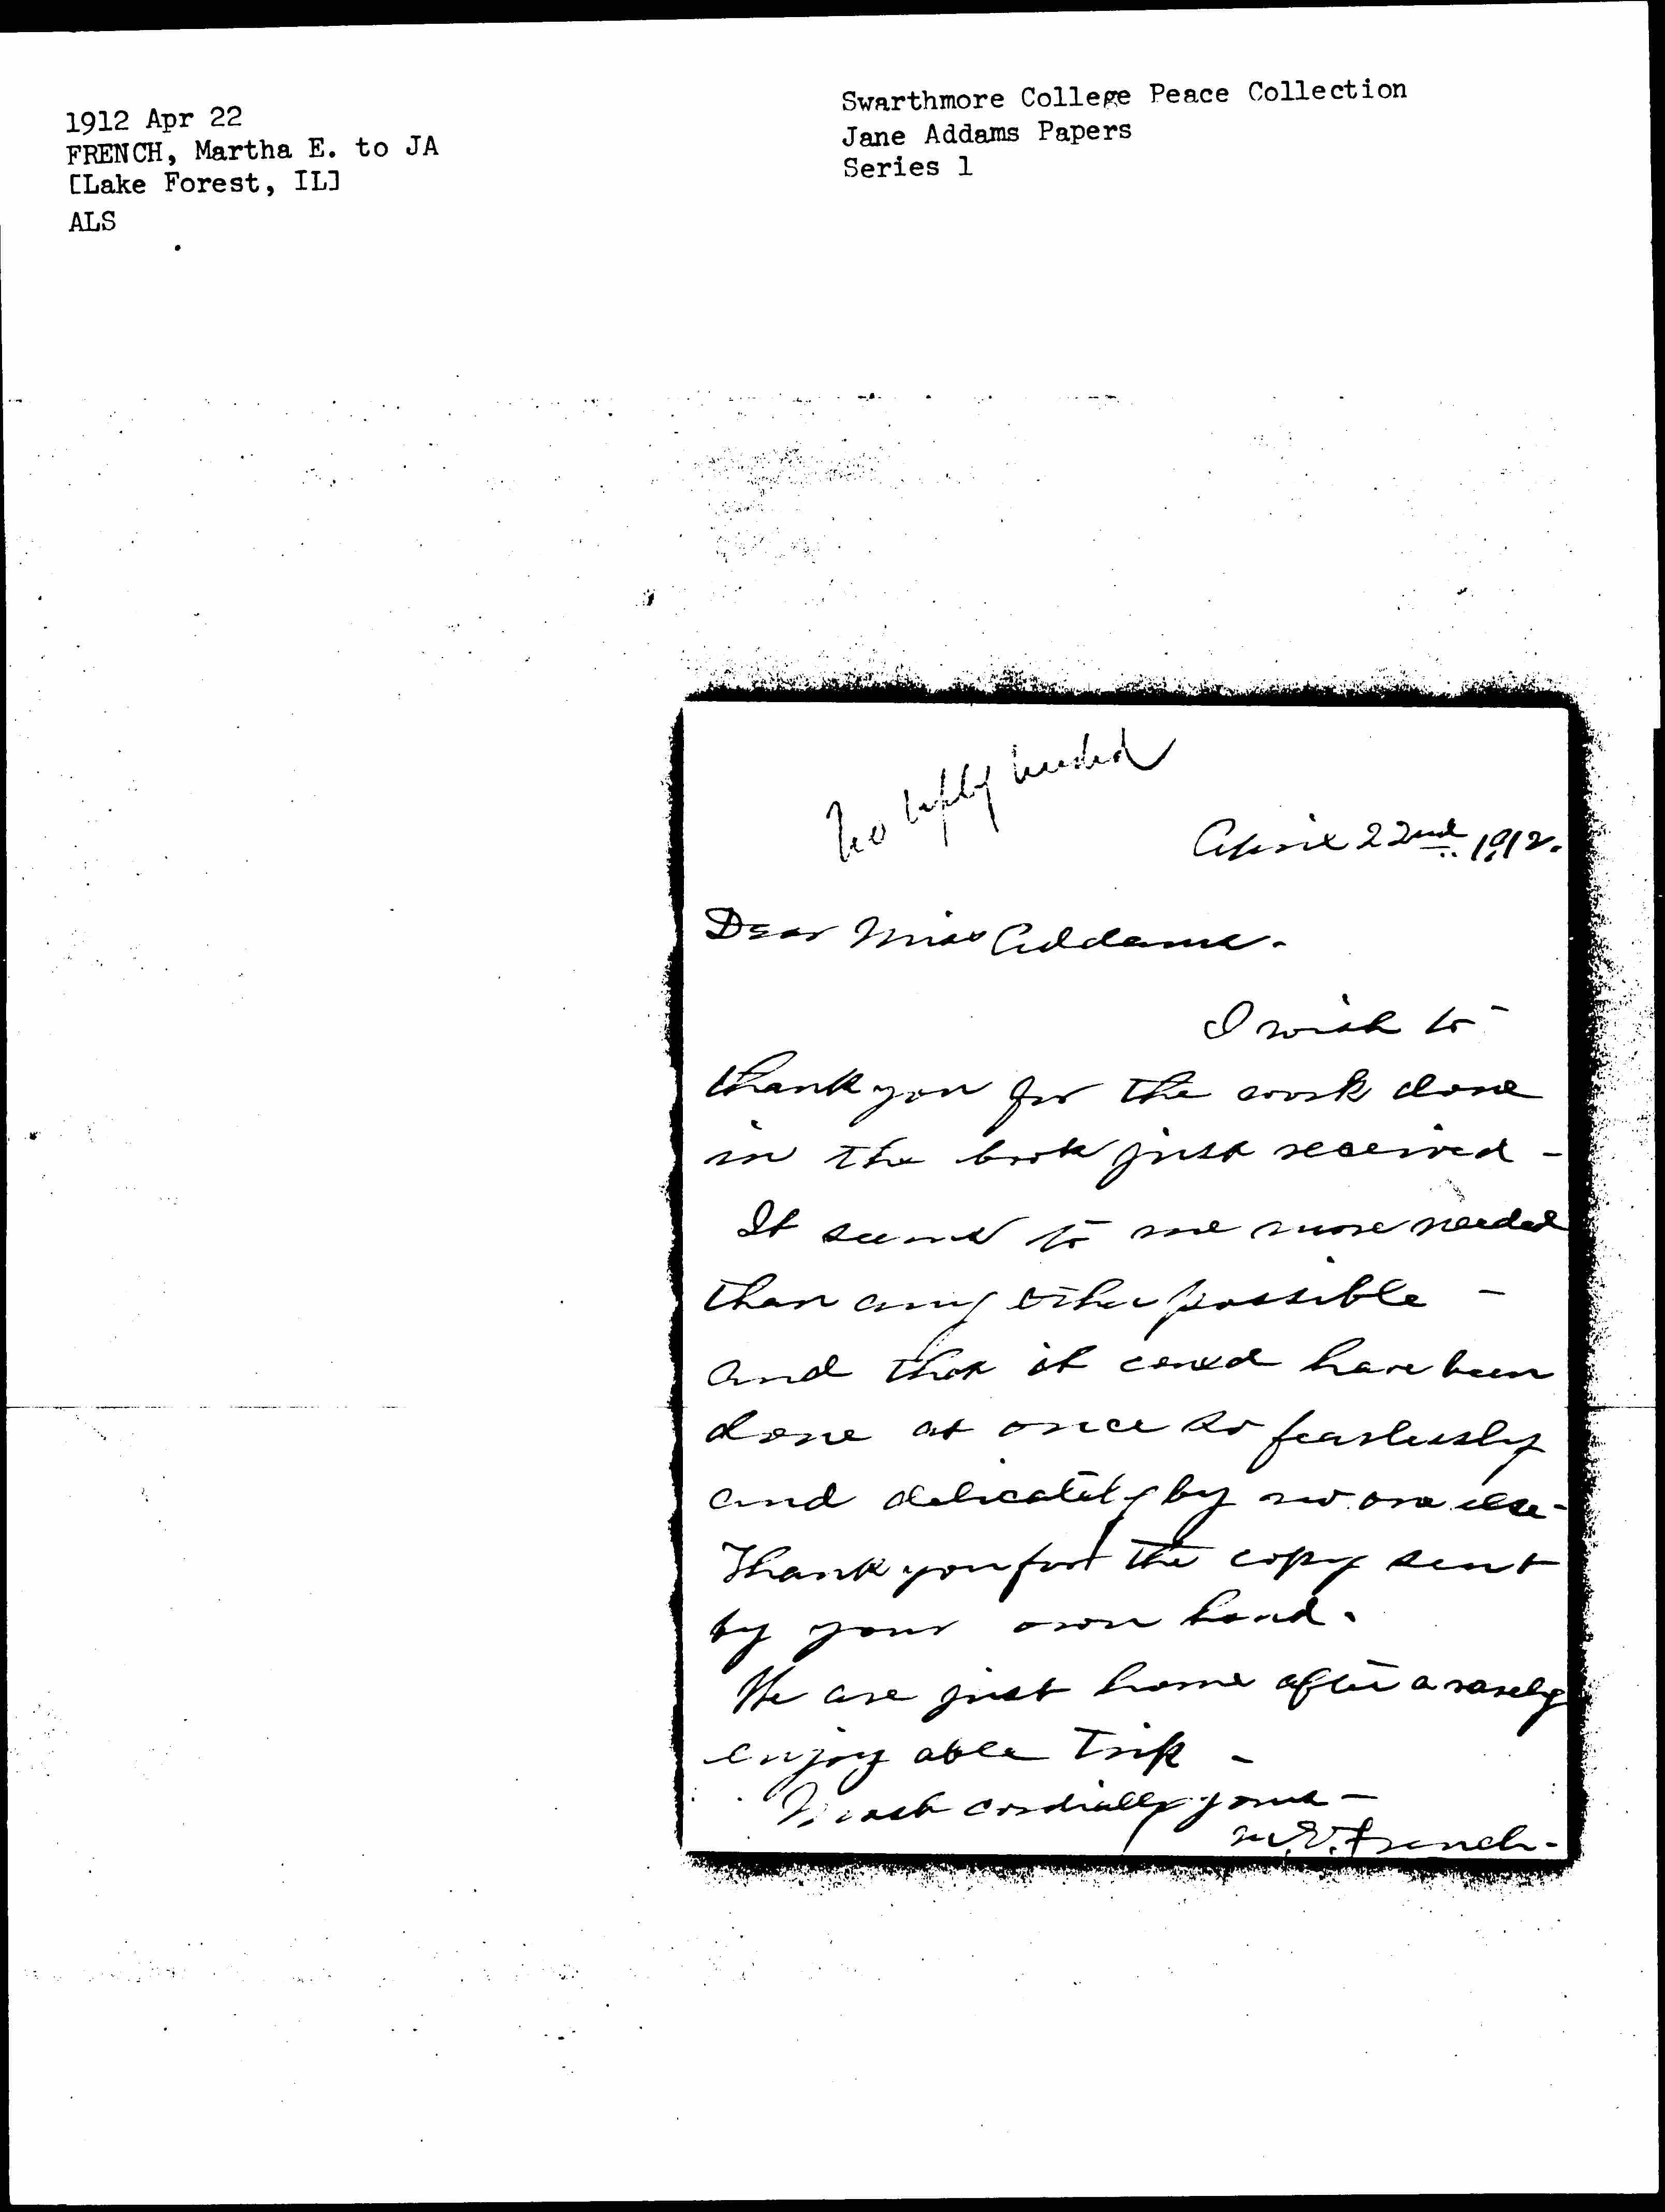 1912 Apr 22
FRENCH, Martha E. to JA
[Lake Forest, IL]
ALS
Swarthmore College Peace Collection
Jane Addams Papers
Series 1
No reply needed
April 22nd 1912.
Dear Miss Addams.
I wish to
thank you for the work done
in the book just received -
It seems to me more needed
than any other possible -
and that it could have been
done at once so fearlessly
and delicately by no one else -
Thank you for the copy sent
by your own hand.
We are just home after a rarely
enjoy able trip -
Most cordially yours -
M. E. French -